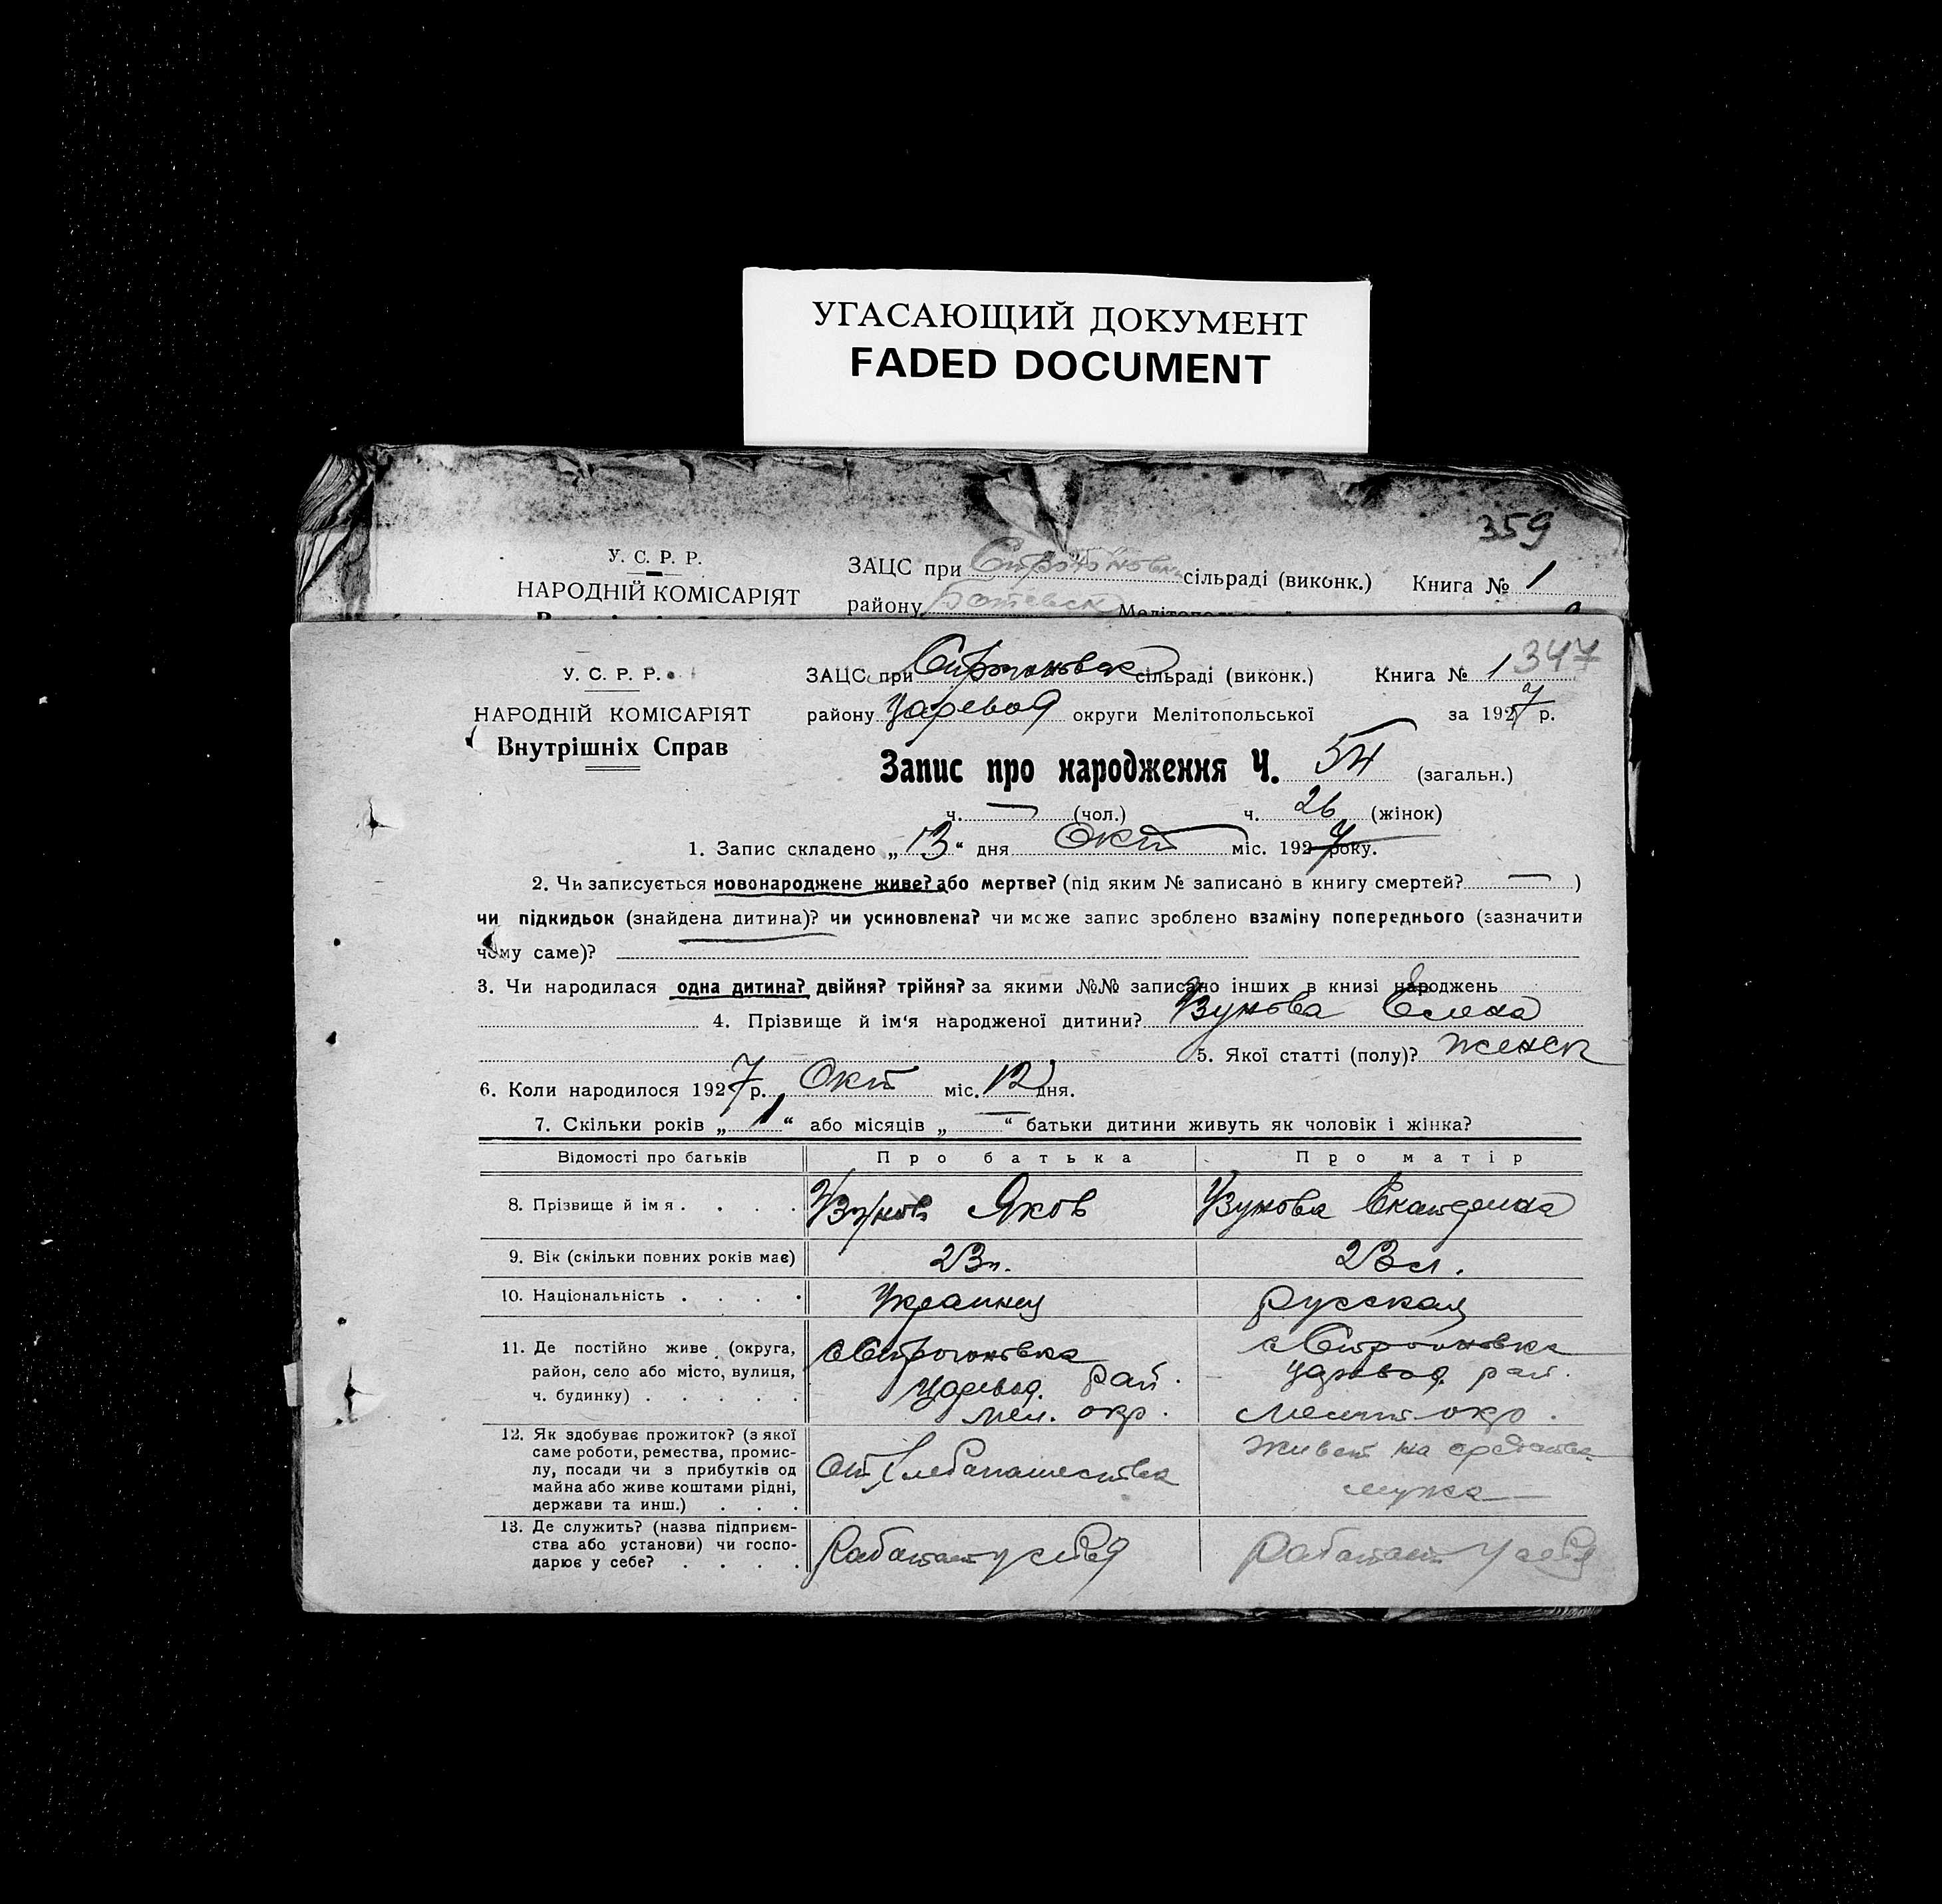 УГАСАЮЩИЙ ДОКУМЕНТ
FADED DOCUMENT
359
У. С. Р. Р.
НАРОДНІЙ КОМІСАРІЯТ
ЗАЦС при сільраді (виконк.) Книга № 1
району Ботевск
347
У. С. Р. Р.
НАРОДНІЙ КОМІСАРІЯТ
Внутрішніх Справ
ЗАЦС при сільраді (виконк.) Книга № 1
району Царевод округи Мелітопольської за 1927 р.
Запис про народження Ч. 54 (загальн.)
ч. — (чол.) ч. 26 (жінок)
1. Запис складено „13“ дня Окт міс. 1927 року.
2. Чи записується новонароджене живе? або мертве? (під яким № записано в книгу смертей? — )
чи підкидьок (знайдена дитина)? чи усиновлена? чи може запис зроблено взаміну попереднього (зазначити
чому саме)?
3. Чи народилася одна дитина? двійня? трійня? за якими №№ записано інших в книзі народжень
4. Прізвище й ім'я народженої дитини? Узунова Елена
5. Якої статті (полу)? женск
6. Коли народилося 1927 р. Окт міс. 12 дня.
7. Скільки років „1“ або місяців „—“ батьки дитини живуть як чоловік і жінка?
Відомості про батьків Про батька Про матір
8. Прізвище й імя . . . . Узунов Яков Узунова Екатерина
9. Вік (скільки повних років має) 23л. 23л.
10. Національність . . . . Украинец русская
11. Де постійно живе (округа,
район, село або місто, вулиця,
ч. будинку) . . . . .
с Строгоновка
Царевод. рай.
Мел. окр.
с Строгоновка
Царевод. рай.
Мелит. окр.
12. Як здобуває прожиток? (з якої
саме роботи, ремества, промис-
лу, посади чи з прибутків од
майна або живе коштами рідні,
держави та инш.) . . .
от хлебапашества
живет на средства
мужа
13. Де служить? (назва підприєм-
ства або установи) чи госпо-
дарює у себе? . . . .
Работает у себя
Работает у себя